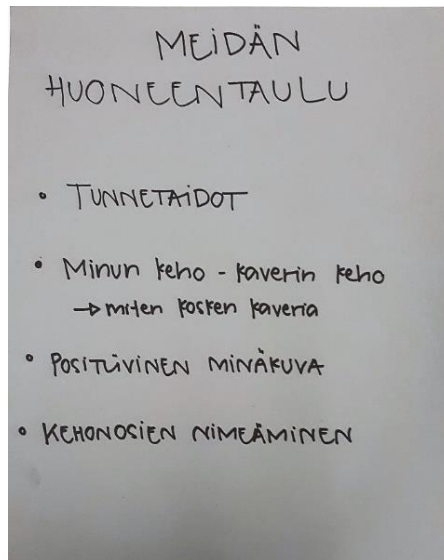 MEiDÄN
HUONEENTAULU
• TUNNETAiDOT
• Minun keho - kaverin keho
→ miten kosken kaveria
• POSiTiiViNEN MiNÄKUVA
• KEHONOSiEN NiMEÄMiNEN